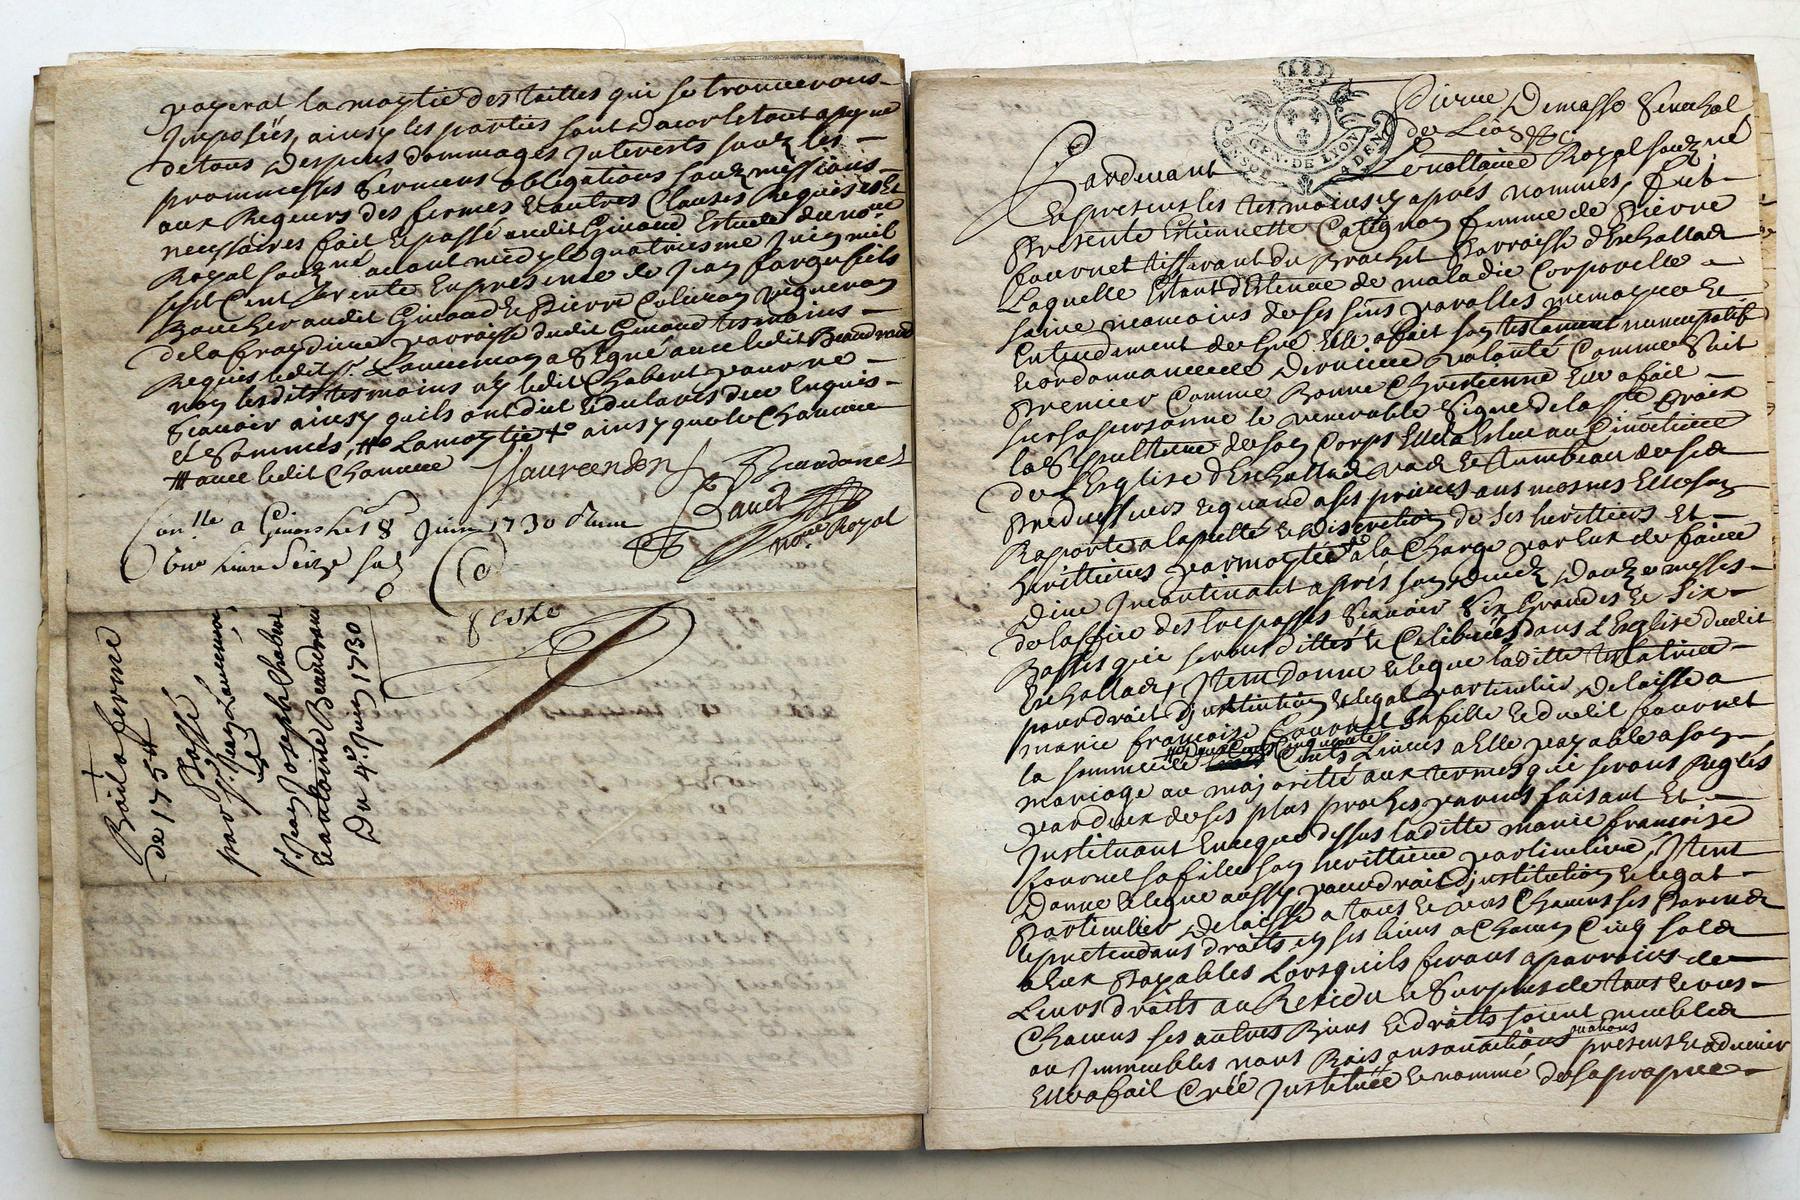 payerat la moytié des tailles qui se trouverons
Imposées, ainsy les parties sont dacor le tout apeyne
de tous despens dommages Interests soubz les
prommesses sermens obligations soubzmissions
aux Rigeurs des fermes et autres Clauses Requises et
necessaires fait et passé audit Givord Estude du no.re
Royal soubzné avant midy le quatriesme Juin mil
sept Cent trente En presence de Jean fils
Boucher audit Givord et Pierre vigneron
de la parroisse dudit Givord tesmoins
Requis ledit Sr. Laurenson a signé avec ledit Beaudrand
non lesdits tesmoins ny ledit Chabert pour ne
scavoir ainsy quils ont dit et declarés de ce Enquis
et sommés, # La moytié ainsy que le Chanvre
# avec ledit Chanvre
Jlaurenson Beaudrand
Con.lle a Givors le 18 Juin 1730
livre seize sols
no.re Royal
Bail a ferme
de 175 ₶
Passé
par Sr. Jean Laurenson
a
Sr. Jean Joseph Chabert
et antoine Beaudrand
Du 4.e Juin 1730
GEN. DE LYON
Pierre Demasso Senechal
de Lion &c
Pardevant Le nottaire Royal soubzné
Et presens les tesmoins cy apres nommés, fut
Presente Estiennette Catignon femme de Pierre
fournet tisserant du Brochet Parroisse dEschallas
Laquelle Estant detenue de maladie Corporelle
saine neamoins de ses sens parolles memoyre et
Entendement de gré Elle a fait son testament nuncupatif
et ordonnance de derniere volonté Comme suit
Premier Comme Bonne Chrestienne Elle a fait
sur sa personne le venerable signe de la Ste Croix
la Sepulture de son Corps Elle a Esleu au Cimetiere
de lEglise dEschallas et tumbeau de ses
Predecesseurs et quand a ses prieres aus mosnes Elle sen
Raporte a la pieté et discretion de ses heritiers et
heritieres par moytié a la Charge par Eux de faire
Dire Incontinant aprés son decedz douze messes
de loffice des trepassés scavoir six Grandes et six
Basses qui serons dittes et Celebrées dans lEglise dudit
Eschallas, Item donne et legue laditte testatrice
pour droit djnstitution et legat particulier delaisse a
marie francoise fournet sa fille et dudit fournet
la somme de deux Cents Cinquante Livres a Elle payable a son
mariage ou majorité aux termes qui serons Reglés
par deux de ses plus proches parens faisant et
Instituant En ce que dessus laditte marie francoise
fournet sa fille son heritiere particuliere, Item
Donne et legue aussy pour droit djnstitution et legat
Particulier delaisse a tous et uns Chacuns ses Parends
et pretendans droits en ses biens a Chacun Cinq solds
a Eux Payables Lorsquils ferons aparroire de
Leurs droits au Residu et surplus de tous et uns
Chacuns ses autres Biens et droits soient meubles
ou Immeubles noms Rais ons actions presens et advenir
Elle a fait Créé Institué et nommé de sa propre